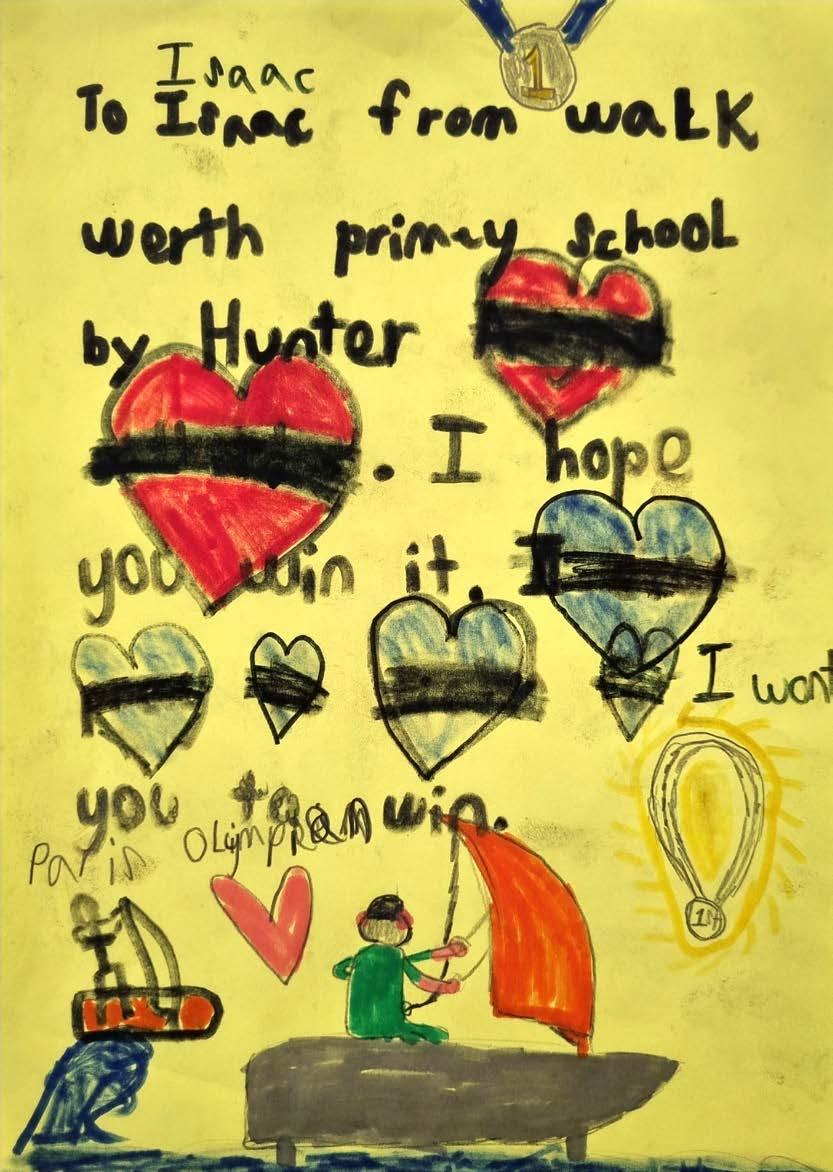 1
Isaac
To Isaac from walk
werth primry school
by Hunter
. I hope
you win it. I
I want
you to win.
Paris
1st